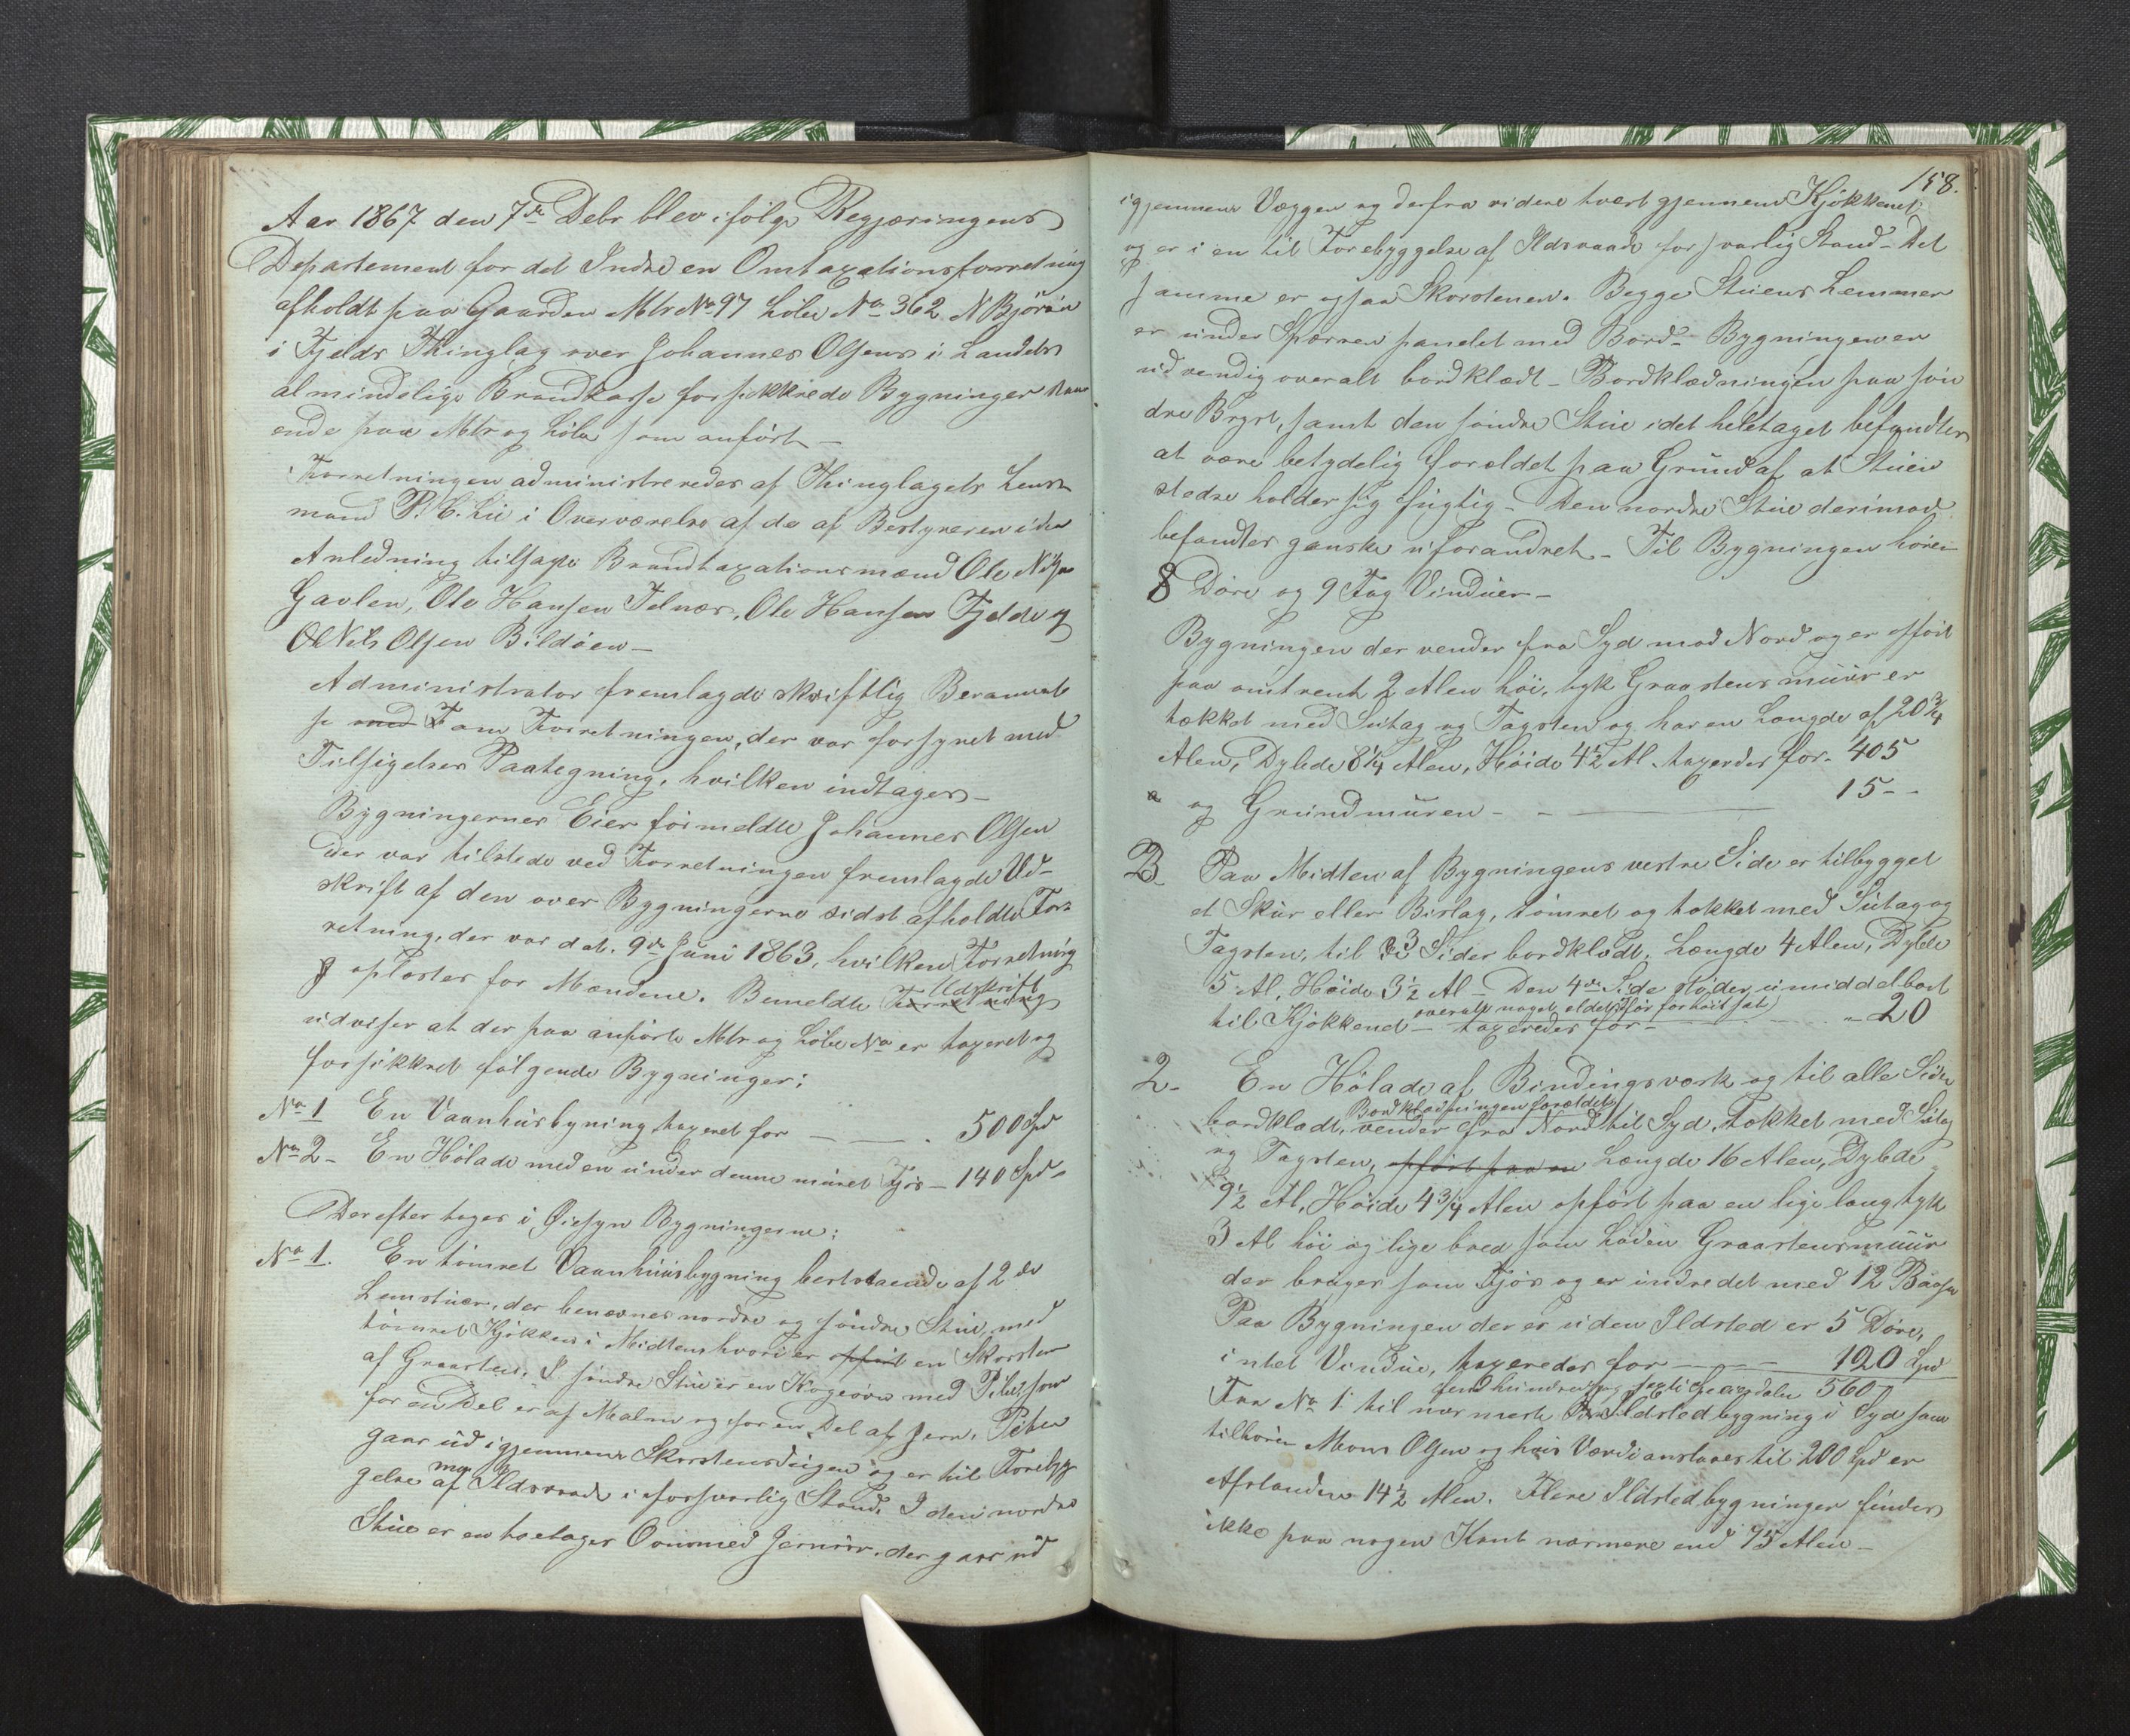 Aar 1867 den 7de Debr blev ifølge Regjæringens
Departement for det Indre en Omtaxationsforretning
afholdt paa Gaarden Mtr No 97 Løbe No 362 N Bjørøen
i Fjelds Thinglag over Johannes Olsens i Landets
almindelige Brandkasse forsikkrede Bygninger staa
ende paa Mtr og Løbe som anført —
Forretningen administreredes af Thinglagets Lens
mand P. C. Lie i Overværelse af de af Bestyreren i den
Anledning tilsagte Brandtaxationsmænd Ole Nilsen
Gavlen, Ole Hansen Telnæs, Ole Hansen Fjelde og
Nils Olsen Bildøen —
Administrator fremlagde skriftlig Berammel
se med F om Forretningen, der var forsynet med
Tilsigelses Paategning, hvilken indtages —
Bygningernes Eier formeldte Johannes Olsen
der var tilstede ved Forretningen fremlagde Ud-
skrift af den over Bygningerne sidst afholdte For-
retning, der var dat. 9de Juni 1863, hvilken Forretning
oplæstes for Mændene. Bemeldte Forretning Udskrift
udviser at der paa anførte Mtr og Løbe No er taxeret og
forsikkret følgende Bygninger:
No 1 En Vaanhusbyning taxeret for — — . 500 Spd
No 2 - En Hølade med en under denne muret Fjøs — 140 Spd -
Derefter toges i Øiesyn Bygningerne:
No 1. En tømret Vaanhuusbygning bestaaende af 2de
Lemstuer, der benævnes nordre og søndre Stue, med
tømret Kjøkken i Midten hvori er opført en Skorsten
af Graasten. I søndre Stue er en Kogeovn med Piber, som
for en Del er af Malm og for en Del af Jern. Piben
gaar ud igjennem Skorstensvingen og er til Forebyg
gelse mod af Ildsvaade i forsvarlig Stand. I den nordre
Stue er en toetages Ovn med Jernrør, der gaar ud
158.
igjennem Væggen og derfra videre tvert gjennem Kjøkkenet,
og er i en til Forebyggelse af Ildsvaade forsvarlig Stand - Det
samme er ogsaa Skorstenen. Begge Stuens Lemmer
er under Spærren panelet med Bord - Bygningen er
udvendig overalt bordklædt - Bordklædningen paa søn
dre Bryst, samt den søndre Stue i det heletaget befandtes
at være betydelig forældet paa Grund af at Stuen
stedse holder sig fugtig - Den nordre Stue derimod
befandtes ganske uforandret - Til Bygningen hører
8 Døre og 9 Fag Vinduer -
Bygningen der vender fra Syd mod Nord og er opført
paa omtrent 2 Alen høi, tyk Graastensmuur er
tækket med Sutag og Tagsten og har en Længde af 20 3/4
Alen, Dybde 8 1/4 Alen, Høide 4 1/2 Al. taxerdes for - 405
a og Grundmuren - - — 15 - -
B Paa Midten af Bygningens vestre Side er tilbygget
et Skur eller Bislag, tømret og tækket med Sutag og
Tagsten, til 3 Sider bordklædt, Længde 4 Alen, Dybde
5 Al, Høide 3 1/2 Al - Den 4de Side støder umiddelbart
overalt noget ældet (før for høit sat)
til Kjøkkenet — taxeredes for - - 20
2 - En Hølade af Bindingsværk og til alle Sider
Bordklædningen forældet
bordklædt, vender fra Nord til Syd, tækket med Sutag
og Tagsten, opført paa en Længde 16 Alen, Dybde
9 1/2 Al, Høide 4 3/4 Alen opført paa en lige lang tyk
3 Al høi og lige bred som Laden Graastensmuur
der bruges som Fjøs og er indredet med 12 Baase
Paa Bygningen der er uden Ildsted er 5 Døre,
intet Vindue, taxeredes for — — 120 Spd
fem hundrede og sexti Speciedaler 560
Fra No 1 til nærmeste Ildstedbygning i Syd som
tilhører Mons Olsen og hvis Værdi anslaaes til 200 Spd er
Afstanden 14 1/2 Alen. Flere Ildstedbygninger findes
ikke paa nogen Kant nærmere end 75 Alen -